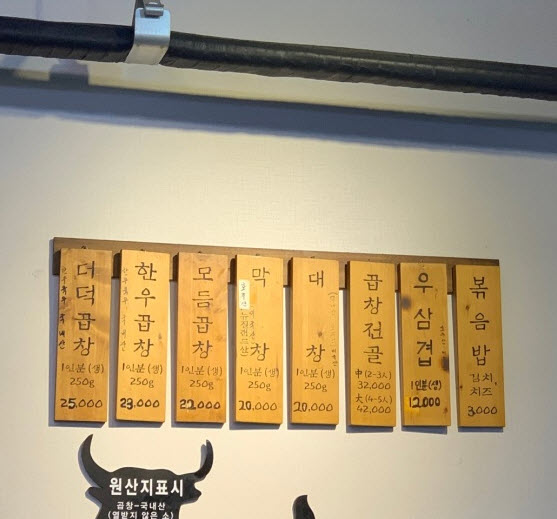 더덕곱창
1인분(생)
250g
25,000
한우곱창
1인분(생)
250g
23,000
모듬곱창
1인분(생)
250g
22,000
막창
뉴질랜드산
1인분(생)
250g
20,000
대창
1인분(생)
250g
20,000
곱창전골
中(2-3人)
32,000
大(4-5人)
42,000
우삼겹
1인분(생)
12,000
볶음밥
김치
치즈
3,000
원산지표시
곱창-국내산
(열받지 않은 소)